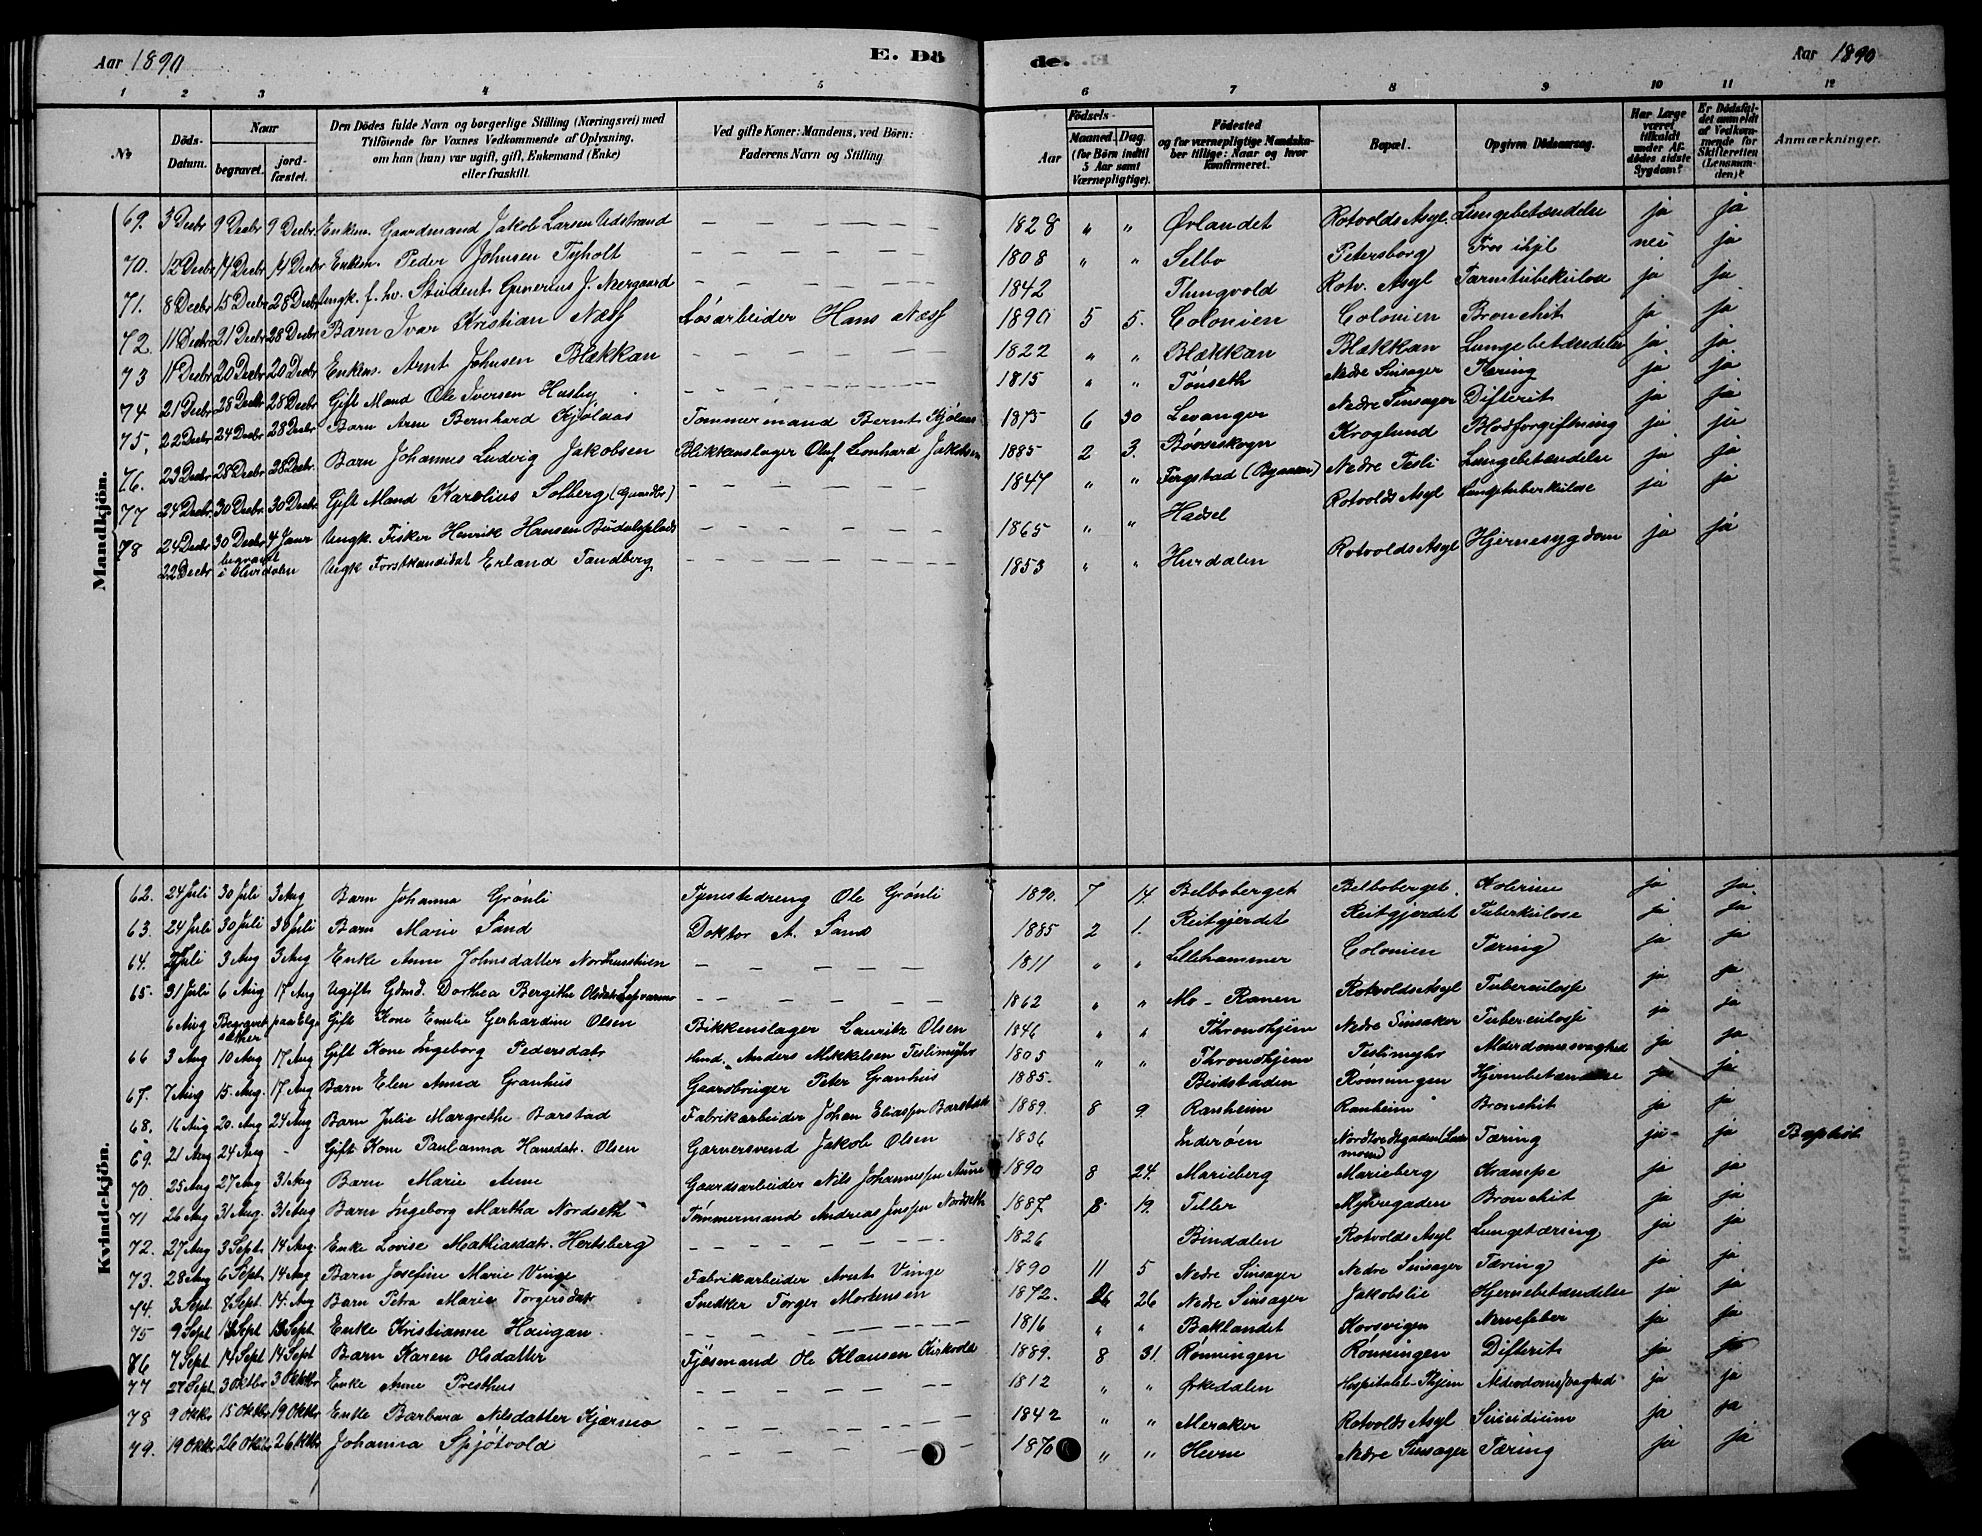 Aar 1890 E. Dö de. Aar 1890
1 2 3 4 5 6 7 8 9 10 11 12
No Döds-Datum. Naar begravet. jordfæstet. Den Dödes fulde Navn og borgerlige Stilling (Næringsvei) med Tilföiende for Voxnes Vedkommende af Oplysning, om han (hun) var ugift, gift, Enkemand (Enke) eller fraskilt. Ved gifte Koner: Mandens, ved Börn: Faderens Navn og Stilling Födsels- Aar Maaned. Dag. (for Börn indtil 5 Aar samt Værnepligtige). Födested og for værnepligtige Mandskaber tillige: Naar og hvor konfirmeret. Bopæl. Opgiven Dödsaarsag. Har Læge været tilkaldt under Afdödes sidste Sygdom? Er Dödsfaldet anmeldt af Vedkommende for Skifteretten (Lensmanden)? Anmærkninger.
Mandkjön.
69. 3 Decbr 9 Decbr 9 Decbr. Enkem. Gaardmand Jakob Larsen Udstrand — 1828 " " Ørlandet Rotvolds Asyl. Lungebetændelse ja ja
70. 12 Decbr 14 Decbr 14 Decbr Enkem. Peder Johnsen Tyholt — 1808 " " Selbo Petersborg Fros ihjel nei ja
71. 8 Decbr 15 Decbr 28 Decbr Ungk. f. hv. Student Generius J. Neergaard — 1842 Thingvold Rotv. Asyl Tarmtuberkulose ja ja
72. 11 Decbr 21 Decbr 28 Decbr Barn Ivar Kristian Næss Løsarbeider Hans Næss 1890 5 5. Colonien Colonien Bronchit ja ja
73 11 Decbr 20 Decbr 20 Decbr Enkem. Arnt Johnsen Blækkan — 1822 " " Blækkan Blækkan Lungebetændelse ja ja
74 21 Decbr 28 Decbr 28 Decbr Gift Mand Ole Iversen Husby — 1815 " " Tønseth Nedre Sinsager Tæring ja ja
75. 22 Decbr 24 Decbr 28 Decbr Barn Arne Bernhard Kjølaas Tømmermand Bernt Kjølaas 1875 6 30 Levanger Nedre Sinsager Difterit ja ja
76. 23 Decbr 28 Decbr 28 Decbr. Barn Johannes Ludvig Jakobsen Blikkenslager Oluf Leonhard Jakobsen 1885 2 3. Børseskogn Kroglund Blodforgiftning ja ja
77 24 Decbr. 30 Decbr 30 Decbr Gift Mand Karolius Solberg (Gaardbr) — 1847 " " Fergstad (Bynæsset) Nedre Tesli Lungebetændelse ja ja
78 24 Decbr 30 Decbr 4 Janr Ungk. Fisker Henrik Hansen Budalsplads — 1865 " " Hadsel Rotvolds Asyl Lungetuberkulose ja ja
22 Decbr begravet i Hurdalen Ungk Forstkandidat Erland Tandberg 1853 " " Hurdalen Rotvolds Asyl Hjernesygdom ja ja
Kvindekjön.
62. 24 Juli 30 Juli 3 Aug Barn Johanna Grønli Tjenestedreng Ole Grønli 1890. 7 14. Belboberget Belboberget. Kolerine ja ja.
63. 24 Juli 30 Juli 30 Juli Barn Marie Sand Doktor A. Sand 1885 2 1. Reitgjerdet Reitgjerdet Tuberkulose ja ja
64. Juli 3 Aug 3 Aug Enke Anne Johnsdatter — 1811 " " Lillehammer Colonien Tæring ja ja
65. 31 Juli 6 Aug 17 Aug Ugift Gdmd. Dorthea Bergithe Olsdatr — 1862 " " Mo - Ranen Rotvolds Asyl Tuberculosse ja ja
6 Aug Begravet paa Elge- sæter Gift Kone Emelie Gerhardine Olsen Blikkenslager Lauritz Olsen 1846 " " Throndhjem Nedre Sinsaker Tuberculosse ja ja
66 3 Aug 10 Aug 17 Aug Gift Kone Ingeborg Pedersdatr Hmd. Anders Mikkelsen Teslimyhr 1805 " " Throndhjem Teslimyhr Alderdomssvaghed ja ja
67. 7 Aug 15. Aug. 17 Aug Barn Elen Anna Granhus Gaardbruger Peter Granhus 1885. Beitstaden Rønningen Hjernebetændelse ja ja
68. 16 Aug 20. Aug 24 Aug Barn Julie Margrethe Barstad Fabrikarbeider Johan Eliassen Barstad 1889. 8 9. Ranheim Ranheim Bronchit ja ja
69. 21 Aug 24 Aug - Gift Kone Paulanna Hansdatr. Olsen Garversvend Jakob Olsen 1836 Inderøen Tæring ja ja Baptist
70. 25 Aug 27 Aug 31 Aug Barn Marie Aune Gaardsarbeider Nils Johannessen Aune 1890 8 24. Marieberg Marieberg Krampe ja ja
71 26 Aug 31 Aug. 31 Aug Barn Ingeborg Martha Nordseth Tømmermand Andreas Jenssen Nordseth 1887 8 19. Tiller Myhregaden Bronchit ja ja
72. 27 Aug 3 Sept. 14 Aug. Enke Lovise Mathiasdatr. Hertsberg — 1826 Bindalen Rotvolds Asyl Lungetæring ja ja
73. 28 Aug 6 Sept 14 Aug Barn Josefine Marie Vinge Fabrikarbeider Arnt Vinge 1890 11 5 Nedre Sinsager Nedre Sinsager Tæring ja ja
74. 3 Sept 8 Sept. 14. Aug Barn Petra Marie Torgersdatr Snedker Torger Mortensen 1872. 26 Nedre Sinsager Jakobslie Hjernebetændelse ja ja
75 9 Sept 13 Sept 13 Sept. Enke Kristianne Haugan. — 1816 " " Baklandet Korsvigen Nervefeber ja ja
86 7 Sept 14 Sept 14 Sept Barn Karen Olsdatter Fjøsmand Ole Klausen Kirkvold 1889. 8 31. Rønningen Rønningen Difterit ja ja
77 27 Sept. 3 Oktbr 3 Oktbr Enke Anne Presthus — 1812 " " Ørkedalen Hospitalet Thjem Alderdomssvaghed ja ja
78 9 Oktbr 15 Oktbr 19 Oktbr Enke Barbara Nilsdatter Kjærmo — 1842 " " Meraker Rotvolds Asyl Suicidium ja ja
79. 19 Oktbr 26 Oktbr 26 Oktbr Johanna Spjøtvold — 1870 " " Hevne Nedre Sinsager Tæring ja ja